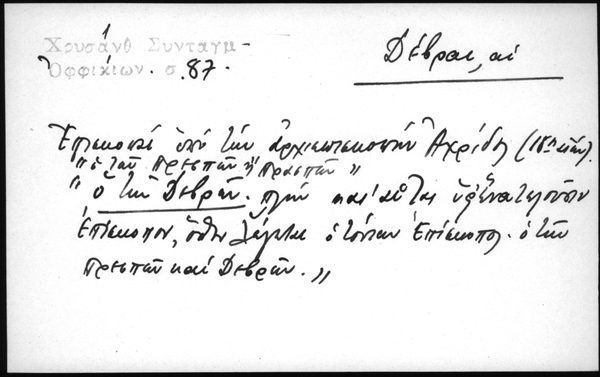 Χρυσάνθ Συνταγμ-
Ὀφφικίων. σ. 87.
Δέβραι, αἱ
Ἐπισκοπὴ ὑπὸ τὴν ἀρχιεπισκοπὴν Ἀχρίδος (18ος αἰών).
"ὁ τῶν Πρεσπῶν ἢ Πρασπῶν"
"ὁ τῶν Δεβρῶν. πλὴν καὶ αὗται ὑφ' ἕνα τελοῦσιν
ἐπίσκοπον, ὅθεν λέγεται ὁ τούτων Ἐπίσκοπος. ὁ τῶν
Πρεσπῶν καὶ Δεβρῶν."